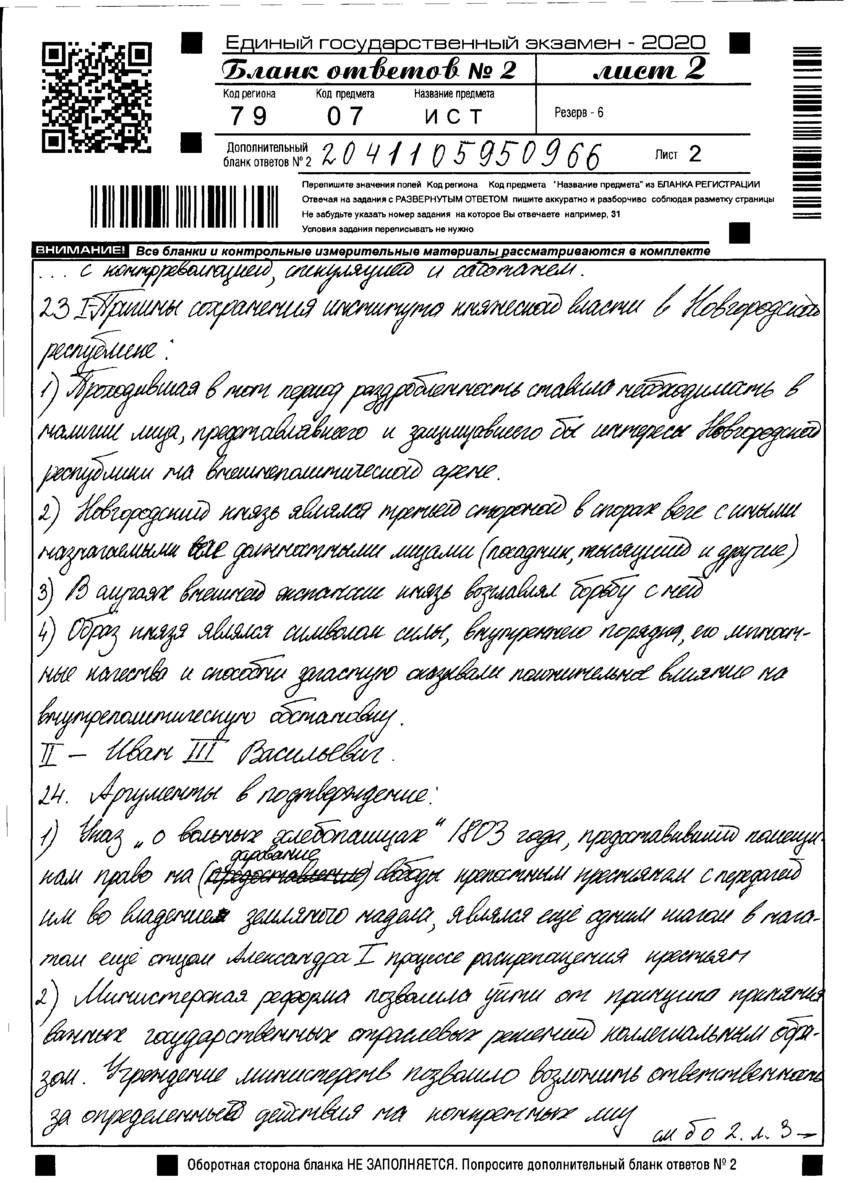 Единый государственный экзамен - 2020
Бланк ответов № 2 лист 2
Код региона Код предмета Название предмета
79 07 ИСТ Резерв - 6
Дополнительный
бланк ответов № 2 2041105950966 Лист 2
Перепишите значения полей Код региона Код предмета "Название предмета" из БЛАНКА РЕГИСТРАЦИИ
Отвечая на задания с РАЗВЕРНУТЫМ ОТВЕТОМ пишите аккуратно и разборчиво соблюдая разметку страницы
Не забудьте указать номер задания на которое Вы отвечаете например, 31
Условия задания переписывать не нужно
ВНИМАНИЕ! Все бланки и контрольные измерительные материалы рассматриваются в комплекте
... с контрреволюцией, спекуляцией и саботажем.
23 I-Причины сохранения института княжеской власти в Новгородской
республике:
1) Проходившая в тот период раздробленность ставила необходимость в
наличии лица, представлявшего и защищавшего бы интересы Новгородской
республики на внешнеполитической арене.
2) Новгородский князь являлся третьей стороной в спорах вече с иными
назначаемыми должностными лицами (посадник, тысяцкий и другие)
3) В случаях внешней экспансии князь возглавлял борьбу с ней
4) Образ князя являлся символом силы, внутреннего порядка, его личност-
ные качества и способы зачастую оказывали положительное влияние на
внутреполитическую обстановку.
II - Иван III Васильевич.
24. Аргументы в подтверждение:
1) Указ „о вольных хлебопашцах" 1803 года, предоставивший помещи-
дарование
кам право на (предоставление) свободы крепостным крестьянам с передачей
им во владение земляного надела, являлся ещё одним шагом в нача-
том ещё отцом Александра I процессе раскрепощения крестьян
2) Министерская реформа позволила уйти от принципа принятия
важных государственных отраслевых решений коллегиальным обра-
зом. Учреждение министерств позволило возложить ответственность
за определенные действия на конкретных лиц
см бо 2. л. 3→
Оборотная сторона бланка НЕ ЗАПОЛНЯЕТСЯ. Попросите дополнительный бланк ответов № 2